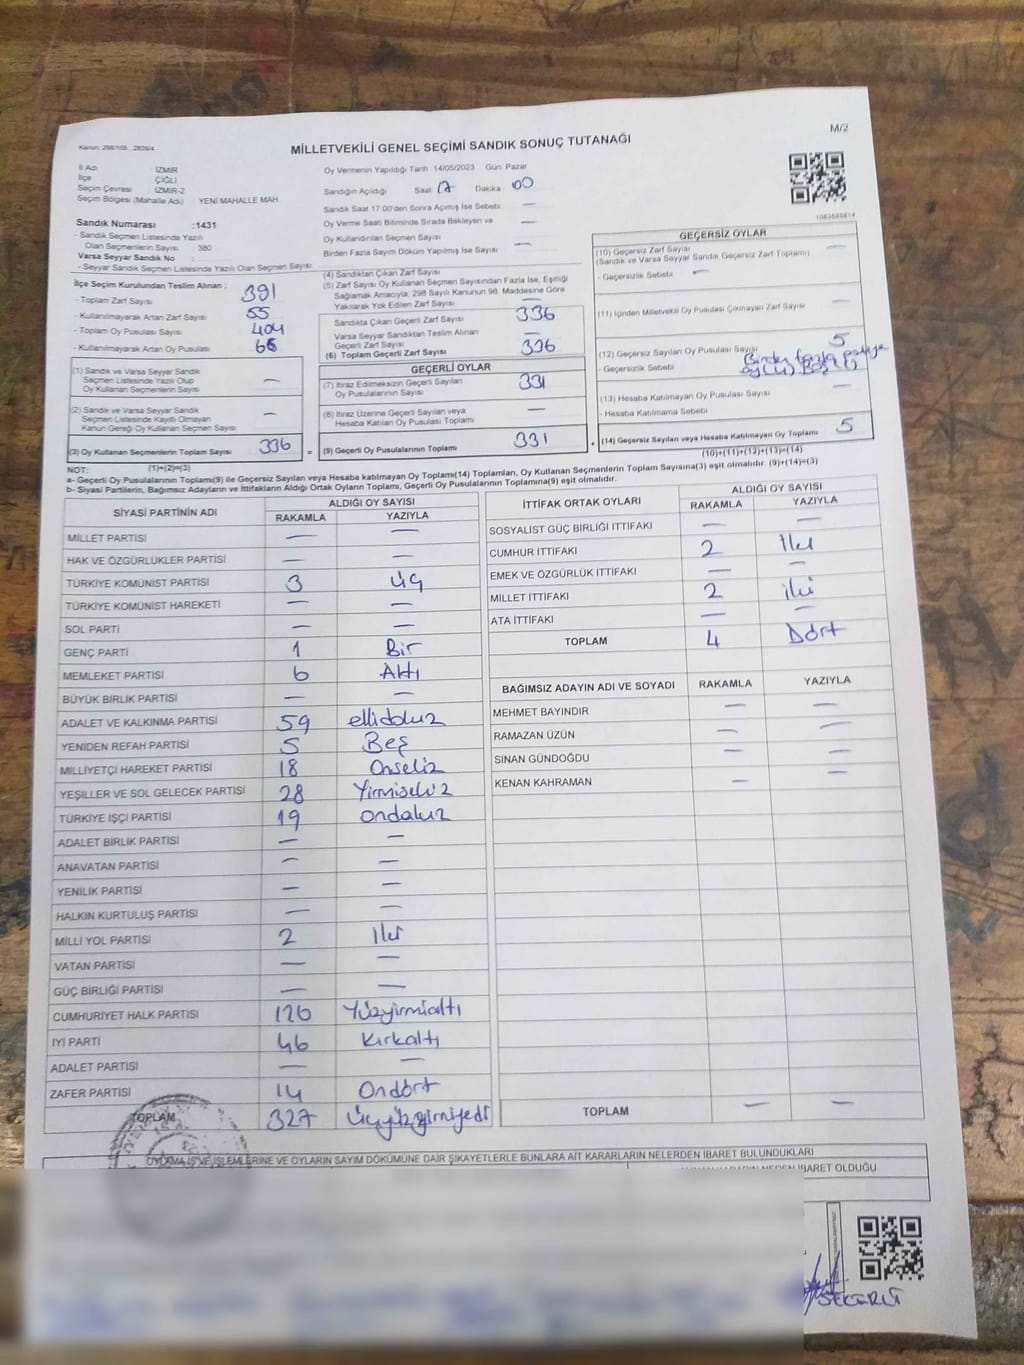 Kanun: 298/105 , 2839/4
M/2
MİLLETVEKİLİ GENEL SEÇİMİ SANDIK SONUÇ TUTANAĞI
İl Adı İZMİR
İlçe ÇİĞLİ
Seçim Çevresi İZMİR-2
Seçim Bölgesi (Mahalle Adı) YENİ MAHALLE MAH
Sandık Numarası :1431
- Sandık Seçmen Listesinde Yazılı
Olan Seçmenlerin Sayısı 380
Varsa Seyyar Sandık No :
- Seyyar Sandık Seçmen Listesinde Yazılı Olan Seçmen Sayısı:
İlçe Seçim Kurulundan Teslim Alınan ;
- Toplam Zarf Sayısı 391
- Kullanılmayarak Artan Zarf Sayısı 55
- Toplam Oy Pusulası Sayısı 404
- Kullanılmayarak Artan Oy Pusulası 68
(1) Sandık ve Varsa Seyyar Sandık
Seçmen Listesinde Yazılı Olup
Oy Kullanan Seçmenlerin Sayısı —
(2) Sandık ve Varsa Seyyar Sandık
Seçmen Listesinde Kayıtlı Olmayan
Kanun Gereği Oy Kullanan Seçmen Sayısı —
(3) Oy Kullanan Seçmenlerin Toplam Sayısı 336
(1)+(2)=(3)
Oy Vermenin Yapıldığı Tarih 14/05/2023 Gün Pazar
Sandığın Açıldığı Saat 17 Dakika 00
Sandık Saat 17:00'den Sonra Açılmış İse Sebebi —
Oy Verme Saati Bitiminde Sırada Bekleyen ve
Oy Kullandırılan Seçmen Sayısı —
Birden Fazla Sayım Döküm Yapılmış İse Sayısı —
(4) Sandıktan Çıkan Zarf Sayısı
(5) Zarf Sayısı Oy Kullanan Seçmen Sayısından Fazla İse, Eşitliği
Sağlamak Amacıyla, 298 Sayılı Kanunun 98. Maddesine Göre
Yakılarak Yok Edilen Zarf Sayısı —
Sandıkta Çıkan Geçerli Zarf Sayısı 336
Varsa Seyyar Sandıktan Teslim Alınan
Geçerli Zarf Sayısı —
(6) Toplam Geçerli Zarf Sayısı 336
GEÇERLİ OYLAR
(7) İtiraz Edilmeksizin Geçerli Sayılan
Oy Pusulalarının Sayısı 331
(8) İtiraz Üzerine Geçerli Sayılan veya
Hesaba Katılan Oy Pusulası Toplamı —
= (9) Geçerli Oy Pusulalarının Toplamı 331
GEÇERSİZ OYLAR
(10) Geçersiz Zarf Sayısı —
(Sandık ve Varsa Seyyar Sandık Geçersiz Zarf Toplamı)
- Geçersizlik Sebebi —
(11) İçinden Milletvekili Oy Pusulası Çıkmayan Zarf Sayısı —
(12) Geçersiz Sayılan Oy Pusulası Sayısı 5
- Geçersizlik Sebebi Birden fazla partiye
oy (4) Boş (1)
(13) Hesaba Katılmayan Oy Pusulası Sayısı —
- Hesaba Katılmama Sebebi
+ (14) Geçersiz Sayılan veya Hesaba Katılmayan Oy Toplamı 5
(10)+(11)+(12)+(13)=(14)
NOT:
a- Geçerli Oy Pusulalarının Toplamı(9) ile Geçersiz Sayılan veya Hesaba katılmayan Oy Toplamı(14) Toplamları, Oy Kullanan Seçmenlerin Toplam Sayısına(3) eşit olmalıdır. (9)+(14)=(3)
b- Siyasi Partilerin, Bağımsız Adayların ve İttifakların Aldığı Ortak Oyların Toplamı, Geçerli Oy Pusulalarının Toplamına(9) eşit olmalıdır.
SİYASİ PARTİNİN ADI ALDIĞI OY SAYISI
RAKAMLA YAZIYLA
MİLLET PARTİSİ — —
HAK VE ÖZGÜRLÜKLER PARTİSİ — —
TÜRKİYE KOMÜNİST PARTİSİ 3 üç
TÜRKİYE KOMÜNİST HAREKETİ — —
SOL PARTİ — —
GENÇ PARTİ 1 Bir
MEMLEKET PARTİSİ 6 Altı
BÜYÜK BİRLİK PARTİSİ — —
ADALET VE KALKINMA PARTİSİ 59 ellidokuz
YENİDEN REFAH PARTİSİ 5 Beş
MİLLİYETÇİ HAREKET PARTİSİ 18 Onsekiz
YEŞİLLER VE SOL GELECEK PARTİSİ 28 Yirmisekiz
TÜRKİYE İŞÇİ PARTİSİ 19 ondokuz
ADALET BİRLİK PARTİSİ — —
ANAVATAN PARTİSİ — —
YENİLİK PARTİSİ — —
HALKIN KURTULUŞ PARTİSİ — —
MİLLİ YOL PARTİSİ 2 İki
VATAN PARTİSİ — —
GÜÇ BİRLİĞİ PARTİSİ — —
CUMHURİYET HALK PARTİSİ 126 Yüzyirmialtı
İYİ PARTİ 46 Kırkaltı
ADALET PARTİSİ — —
ZAFER PARTİSİ 14 Ondört
TOPLAM 327 üçyüzyirmiyedi
İTTİFAK ORTAK OYLARI ALDIĞI OY SAYISI
RAKAMLA YAZIYLA
SOSYALİST GÜÇ BİRLİĞİ İTTİFAKI — —
CUMHUR İTTİFAKI 2 İki
EMEK VE ÖZGÜRLÜK İTTİFAKI — —
MİLLET İTTİFAKI 2 iki
ATA İTTİFAKI — —
TOPLAM 4 Dört
BAĞIMSIZ ADAYIN ADI VE SOYADI RAKAMLA YAZIYLA
MEHMET BAYINDIR — —
RAMAZAN ÜZÜN — —
SİNAN GÜNDOĞDU — —
KENAN KAHRAMAN — —
TOPLAM — —
OYLAMA İŞ VE İŞLEMLERİNE VE OYLARIN SAYIM DÖKÜMÜNE DAİR ŞİKAYETLERLE BUNLARA AİT KARARLARIN NELERDEN İBARET BULUNDUKLARI
İBARET OLDUĞU